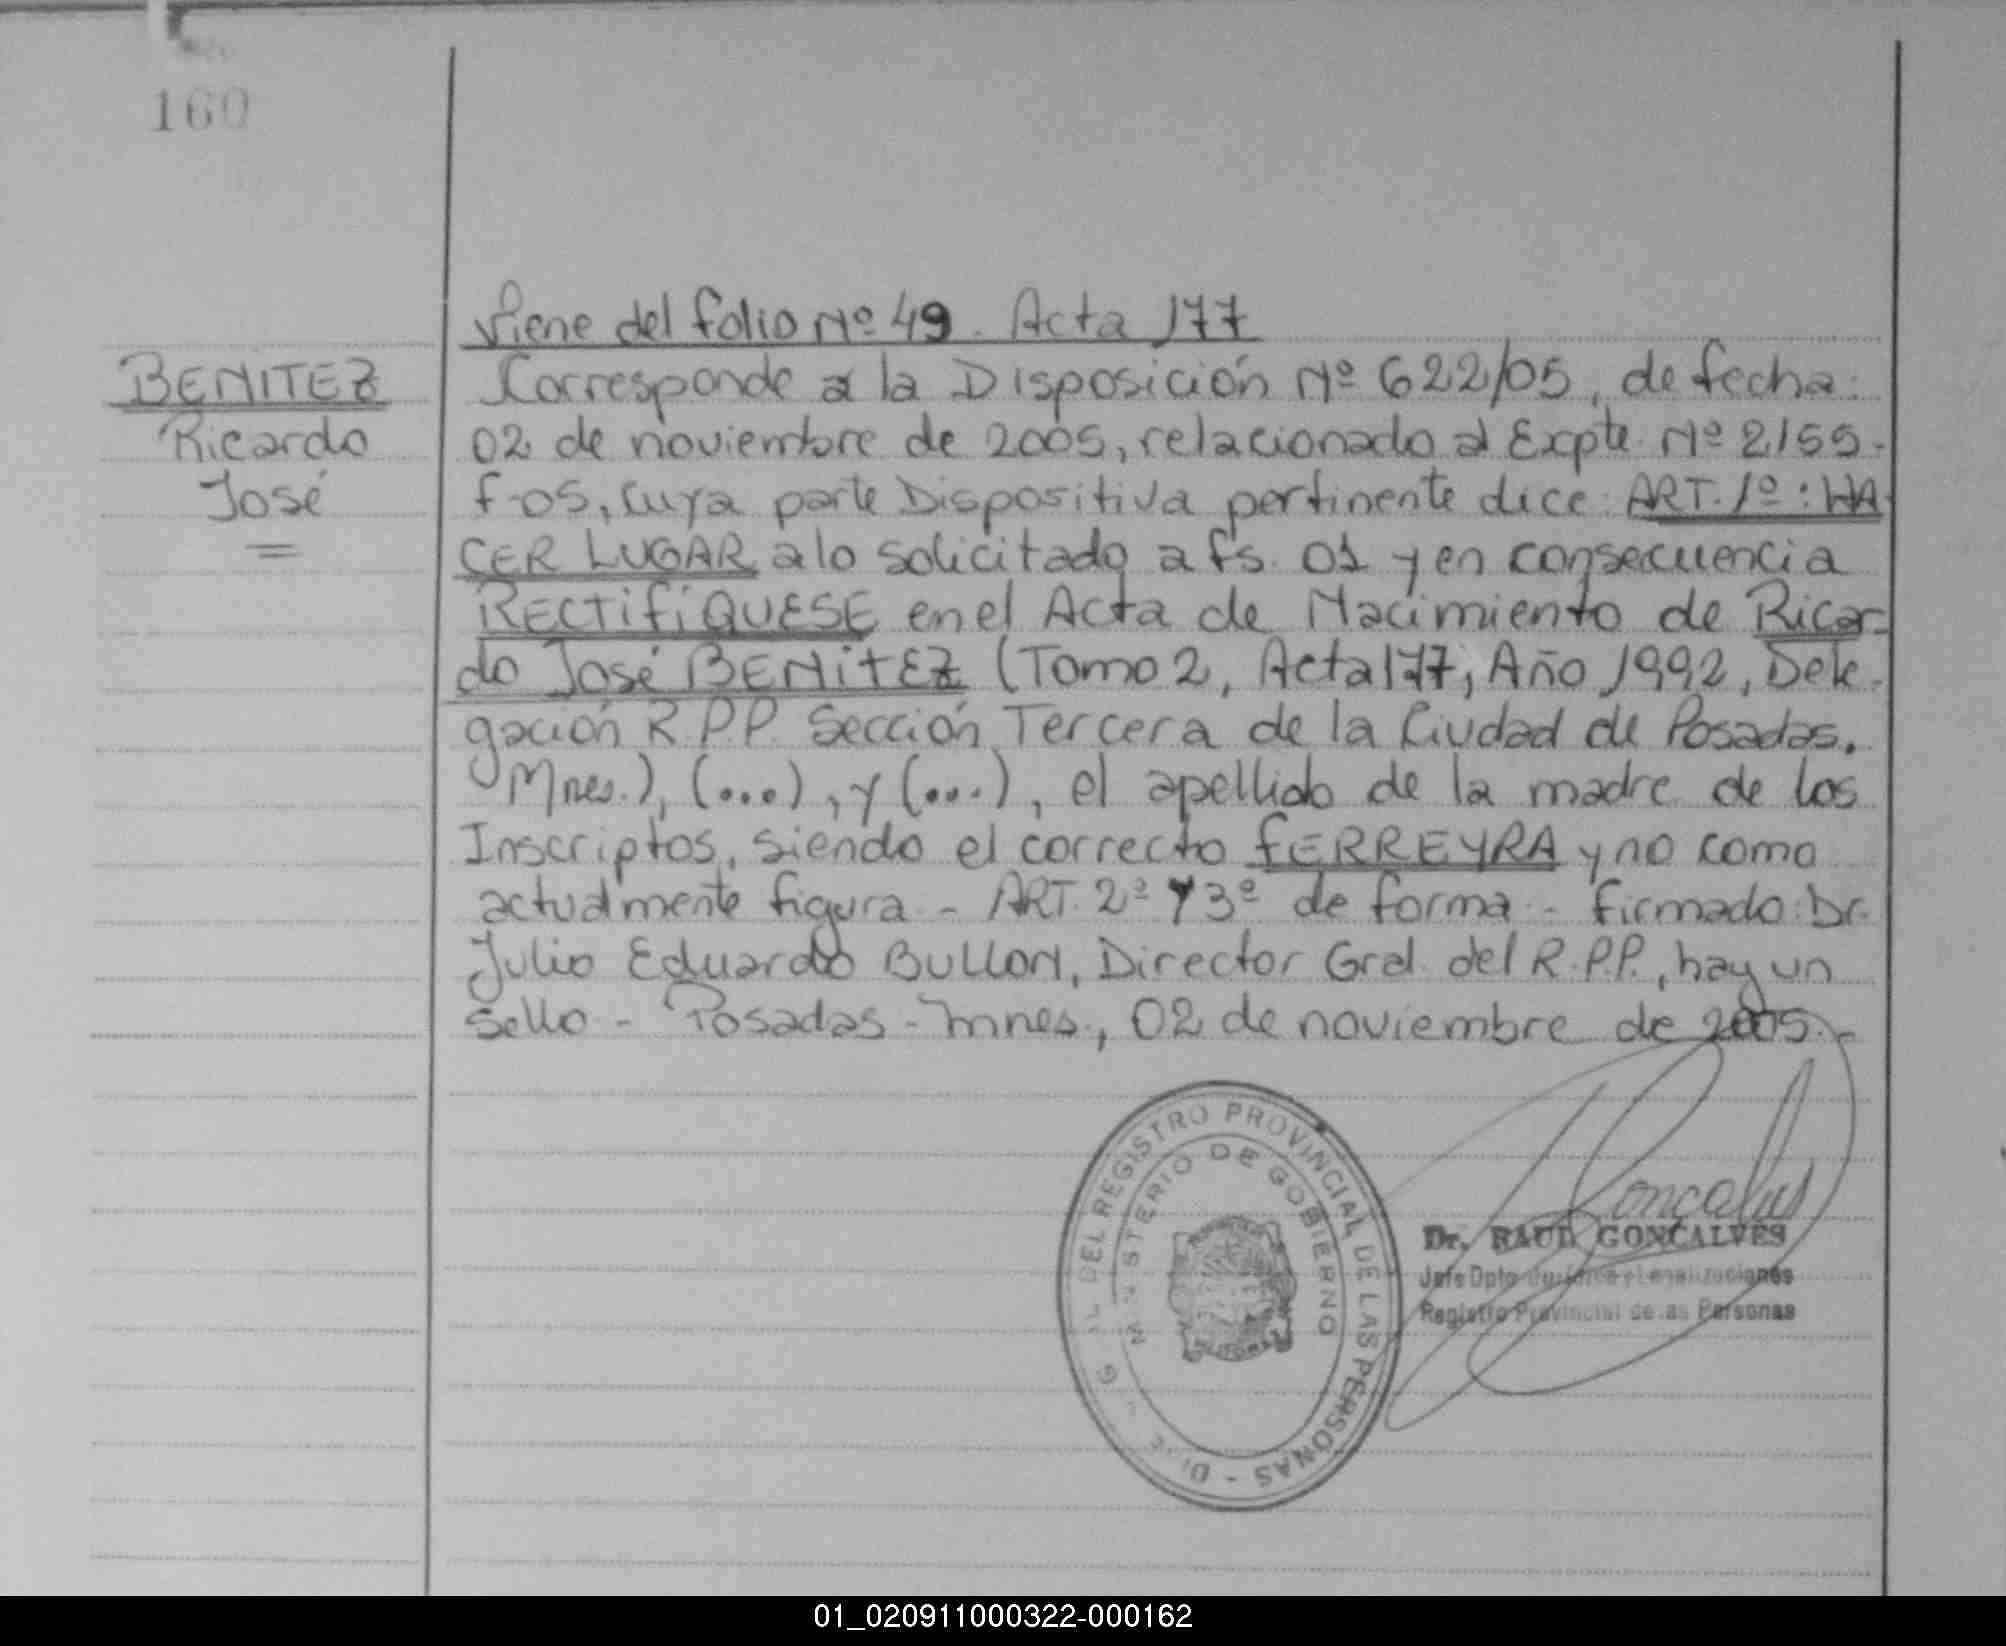 160
Viene del folio Nº 49. Acta 177
BENITEZ
Ricardo
José
Corresponde a la Disposición Nº 622/05, de fecha:
02 de noviembre de 2005, relacionado al Expte. Nº 2155-
F-05, cuya parte Dispositiva pertinente dice: ART. 1º: HA
CER LUGAR a lo solicitado a fs. 01 y en consecuencia
RECTIFIQUESE en el Acta de Nacimiento de Ricar-
do José BENITEZ (Tomo 2, Acta 177, Año 1992, Dele-
gación R.P.P. Sección Tercera de la Ciudad de Posadas,
Mnes.), (...), y (...), el apellido de la madre de los
Inscriptos, siendo el correcto FERREYRA y no como
actualmente figura - ART. 2º y 3º de forma - Firmado: Dr.
Julio Eduardo BULLON, Director Gral. del R.P.P., hay un
Sello - Posadas - Mnes., 02 de noviembre de 2005.-
DEL REGISTRO PROVINCIAL DE LAS PERSONAS -
MINISTERIO DE GOBIERNO
Goncalves
Dr. RAUL GONCALVES
Jefe Dpto Jurídico y Legalizaciones
Registro Provincial de las Personas
01_020911000322-000162